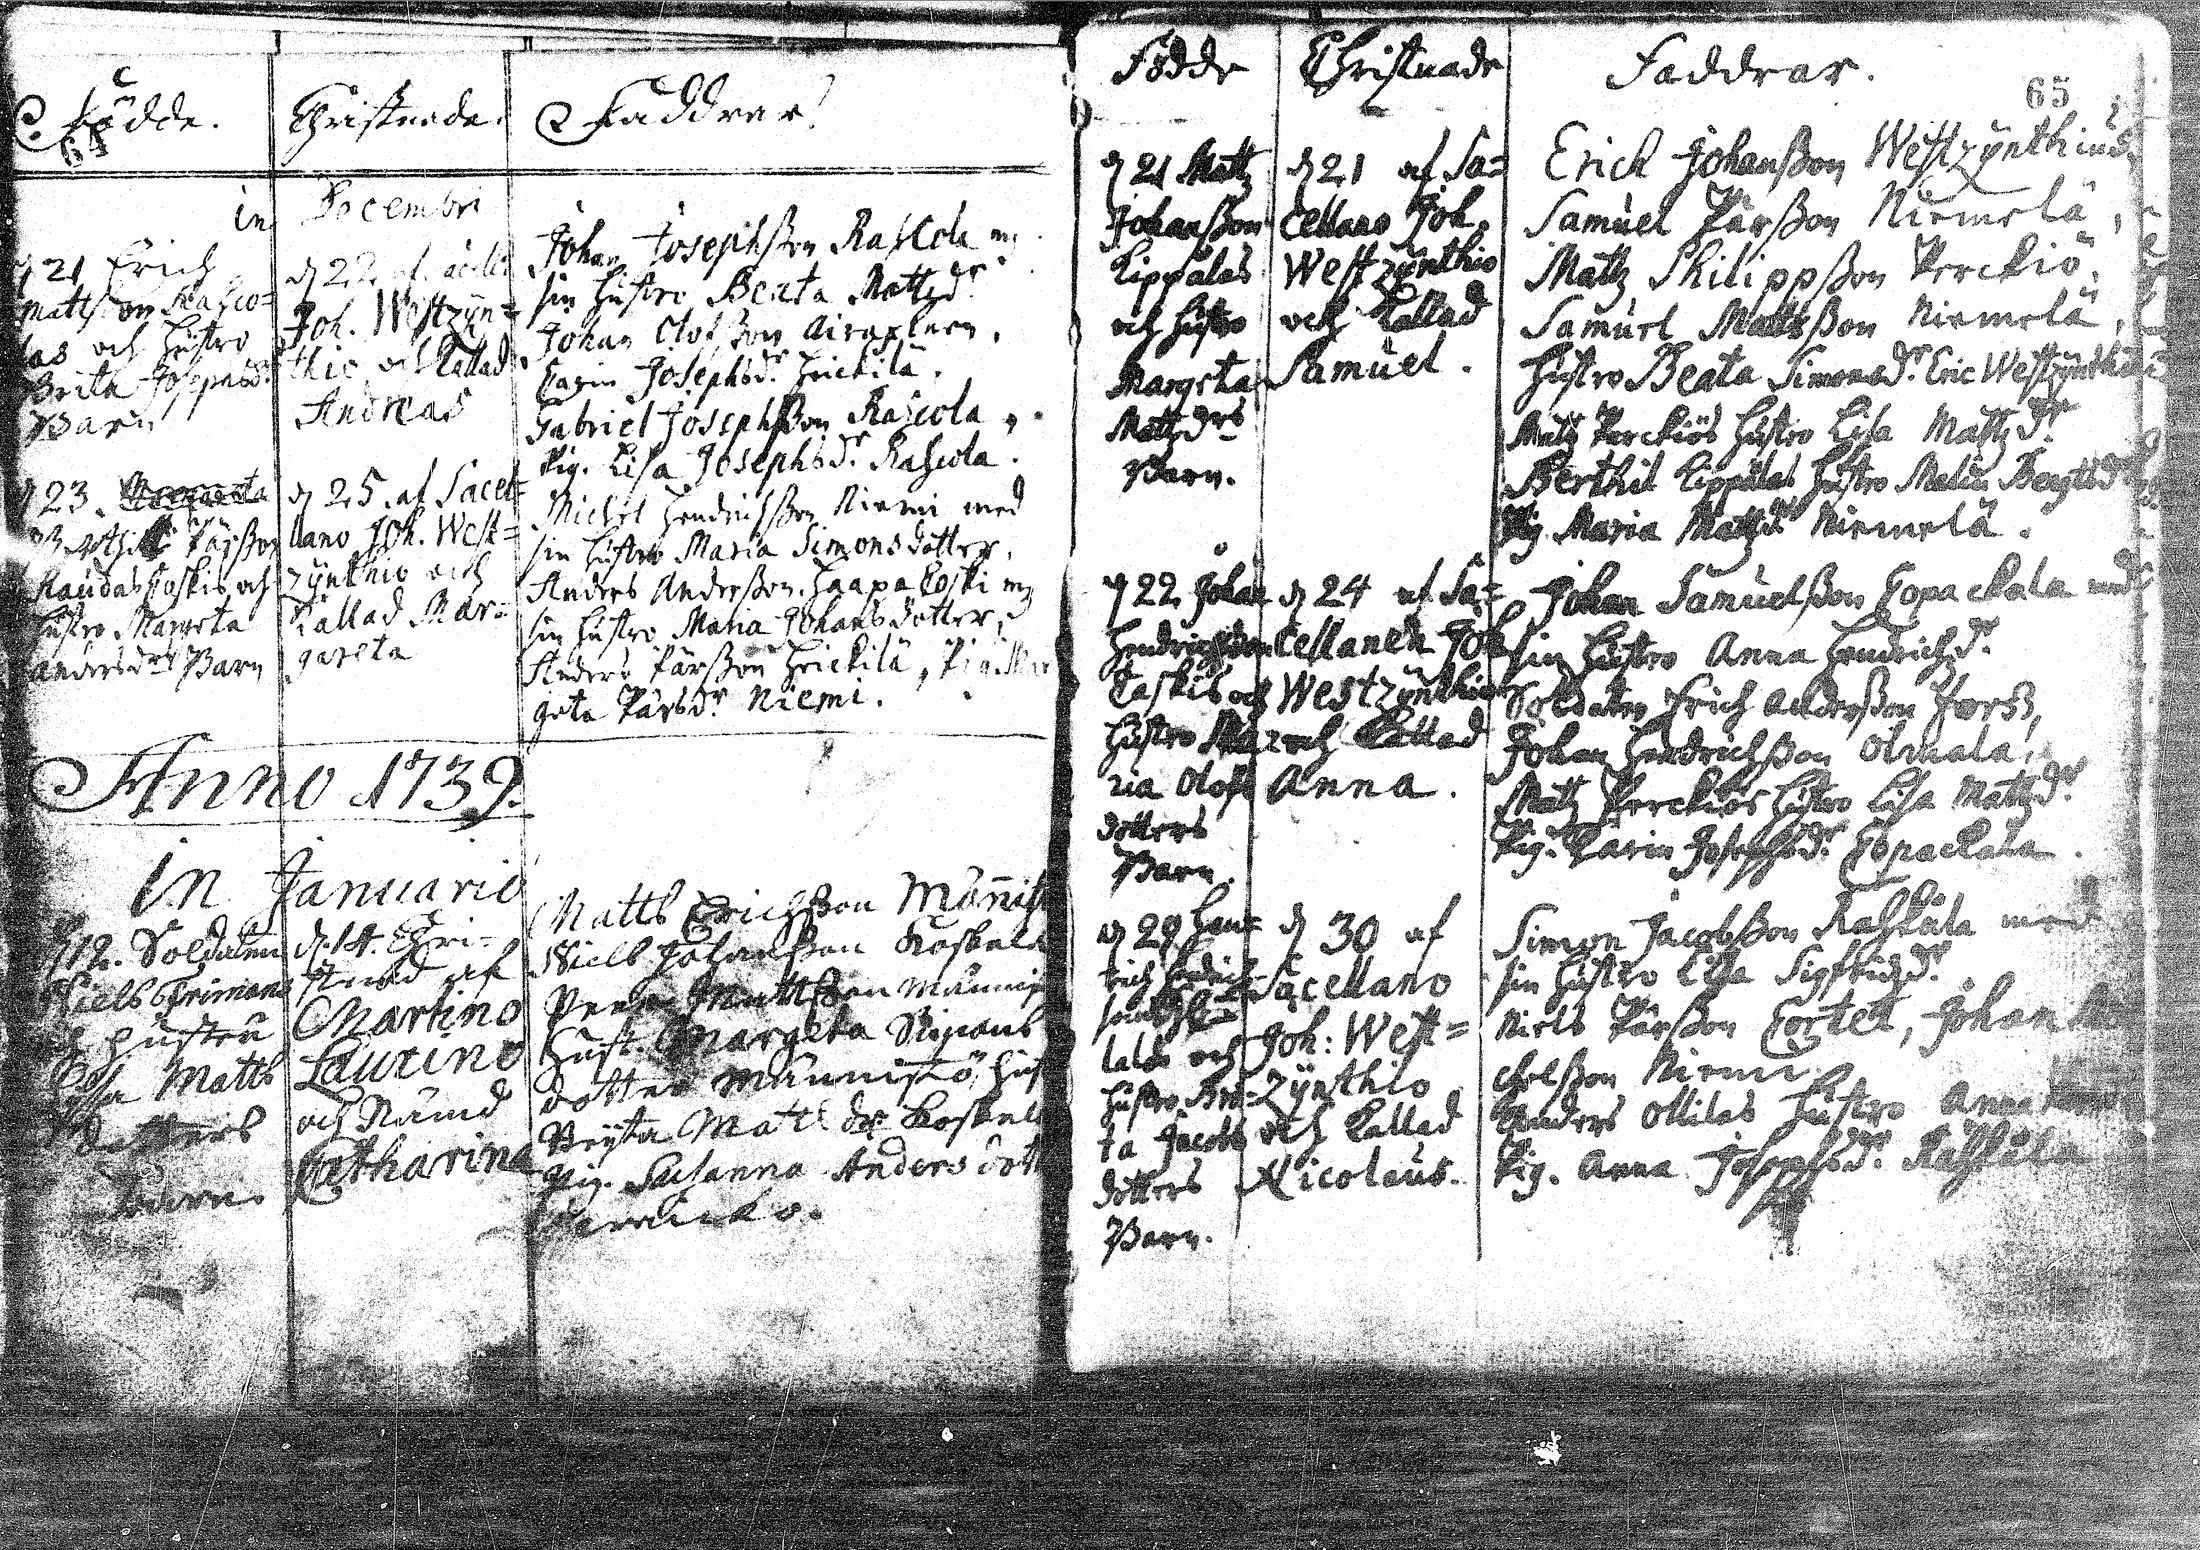 Födde.
Christnade.
Faddrar.
64
in Decembri
d 21 Erich
Mattsson Rasco=
las och Hustro
Brita Josephsdr
Barn
d 22 af Sacell:
Joh. Westzÿn=
thio och kallad
Andreas
Johan Josephsson Rascola m
sin Hustro Beata Mattzdr
Johan Olofsson Airaxinen,
Carin Josephsdr Heickilä.
Gabriel Josephsson Rascola,
Pig. Lisa Josephsdr Rascola.
d 23.
Berthil Pärsson
Raudaskoskis och
Hustro Margeta
Andersdrs Barn
d 25. af Sacel=
lano Joh. West=
zÿnthio och
kallad Mar=
gareta
Michel Hendrichsson Niemi med
sin Hustro Maria Simonsdotter,
Anders Andersson Haapakoski m
sin Hustro Maria Johansdotter,
Anders Pärsson Heickilä, Pig. Mar
geta Pärsdr Niemi.
Anno 1739.
in Januario
d 12. Soldaten
Niels Frimans
Hustru
Lisa Matts
dotters
Barn.
d. 14. Chri=
stnad af
Martino
Laurino
och Nämd
Catharina
Matts Erichsson Männist
Niels Johansson Koskela
Mattsson Männis
Hust. Margeta Sigrans
dotter Männistö, Hus
Bryta Matts dr Koskel
Pig. Susanna Anders dott
Födde
Christnade
Faddrar.
65
d 21 Mattz
Johansson
Kippalas
och Hustro
Margeta
Mattzdrs
Barn.
d 21 af Sa=
cellano Joh.
Westzÿnthio
och kallad
Samuel.
Erich Johansson Westzÿnthius.
Samuel Pärsson Niemelä,
Mattz Philippsson Perckiö,
Samuel Mattsson Niemelä,
Hustro Beata Simonsdr Eric Westzÿnthii
Mattz Perckiös Hustro Lisa Mattzdr
Berthil Kippalas Hustro Malin Bengtsdr
Pig Maria Mattzdr Niemelä.
d 22 Johan
Hendrichsson
Caskis och
Hustro Ma=
ria Olofs
dotters
Barn.
d 24 af Sa=
cellanen Joh
Westzÿnthio
och kallad
Anna.
Johan Samuelsson Copackala med
sin Hustro Anna Hendrichdr
Soldaten Erich Andersson Forss,
Johan Hendrichsson Olmala,
Mattz Perckiös Hustro Lisa Mattzdr
Pig. Karin Josephsdr Copackala.
d 29 Hen=
lalas och
Hustro Bri=
ta Jacobs
dotters
Barn.
d 30 af
Sacellano
Joh: West=
zÿnthio
och kallad
Nicolaus.
Simon Jacobsson Rahkala med
sin Hustro Lisa Sigfridzdr
Niels Pärsson Cortet, Johan Mi
chelsson Niemi.
Anders Ollilas Hustro Anna
Pig. Anna Josephsdr Rahkala